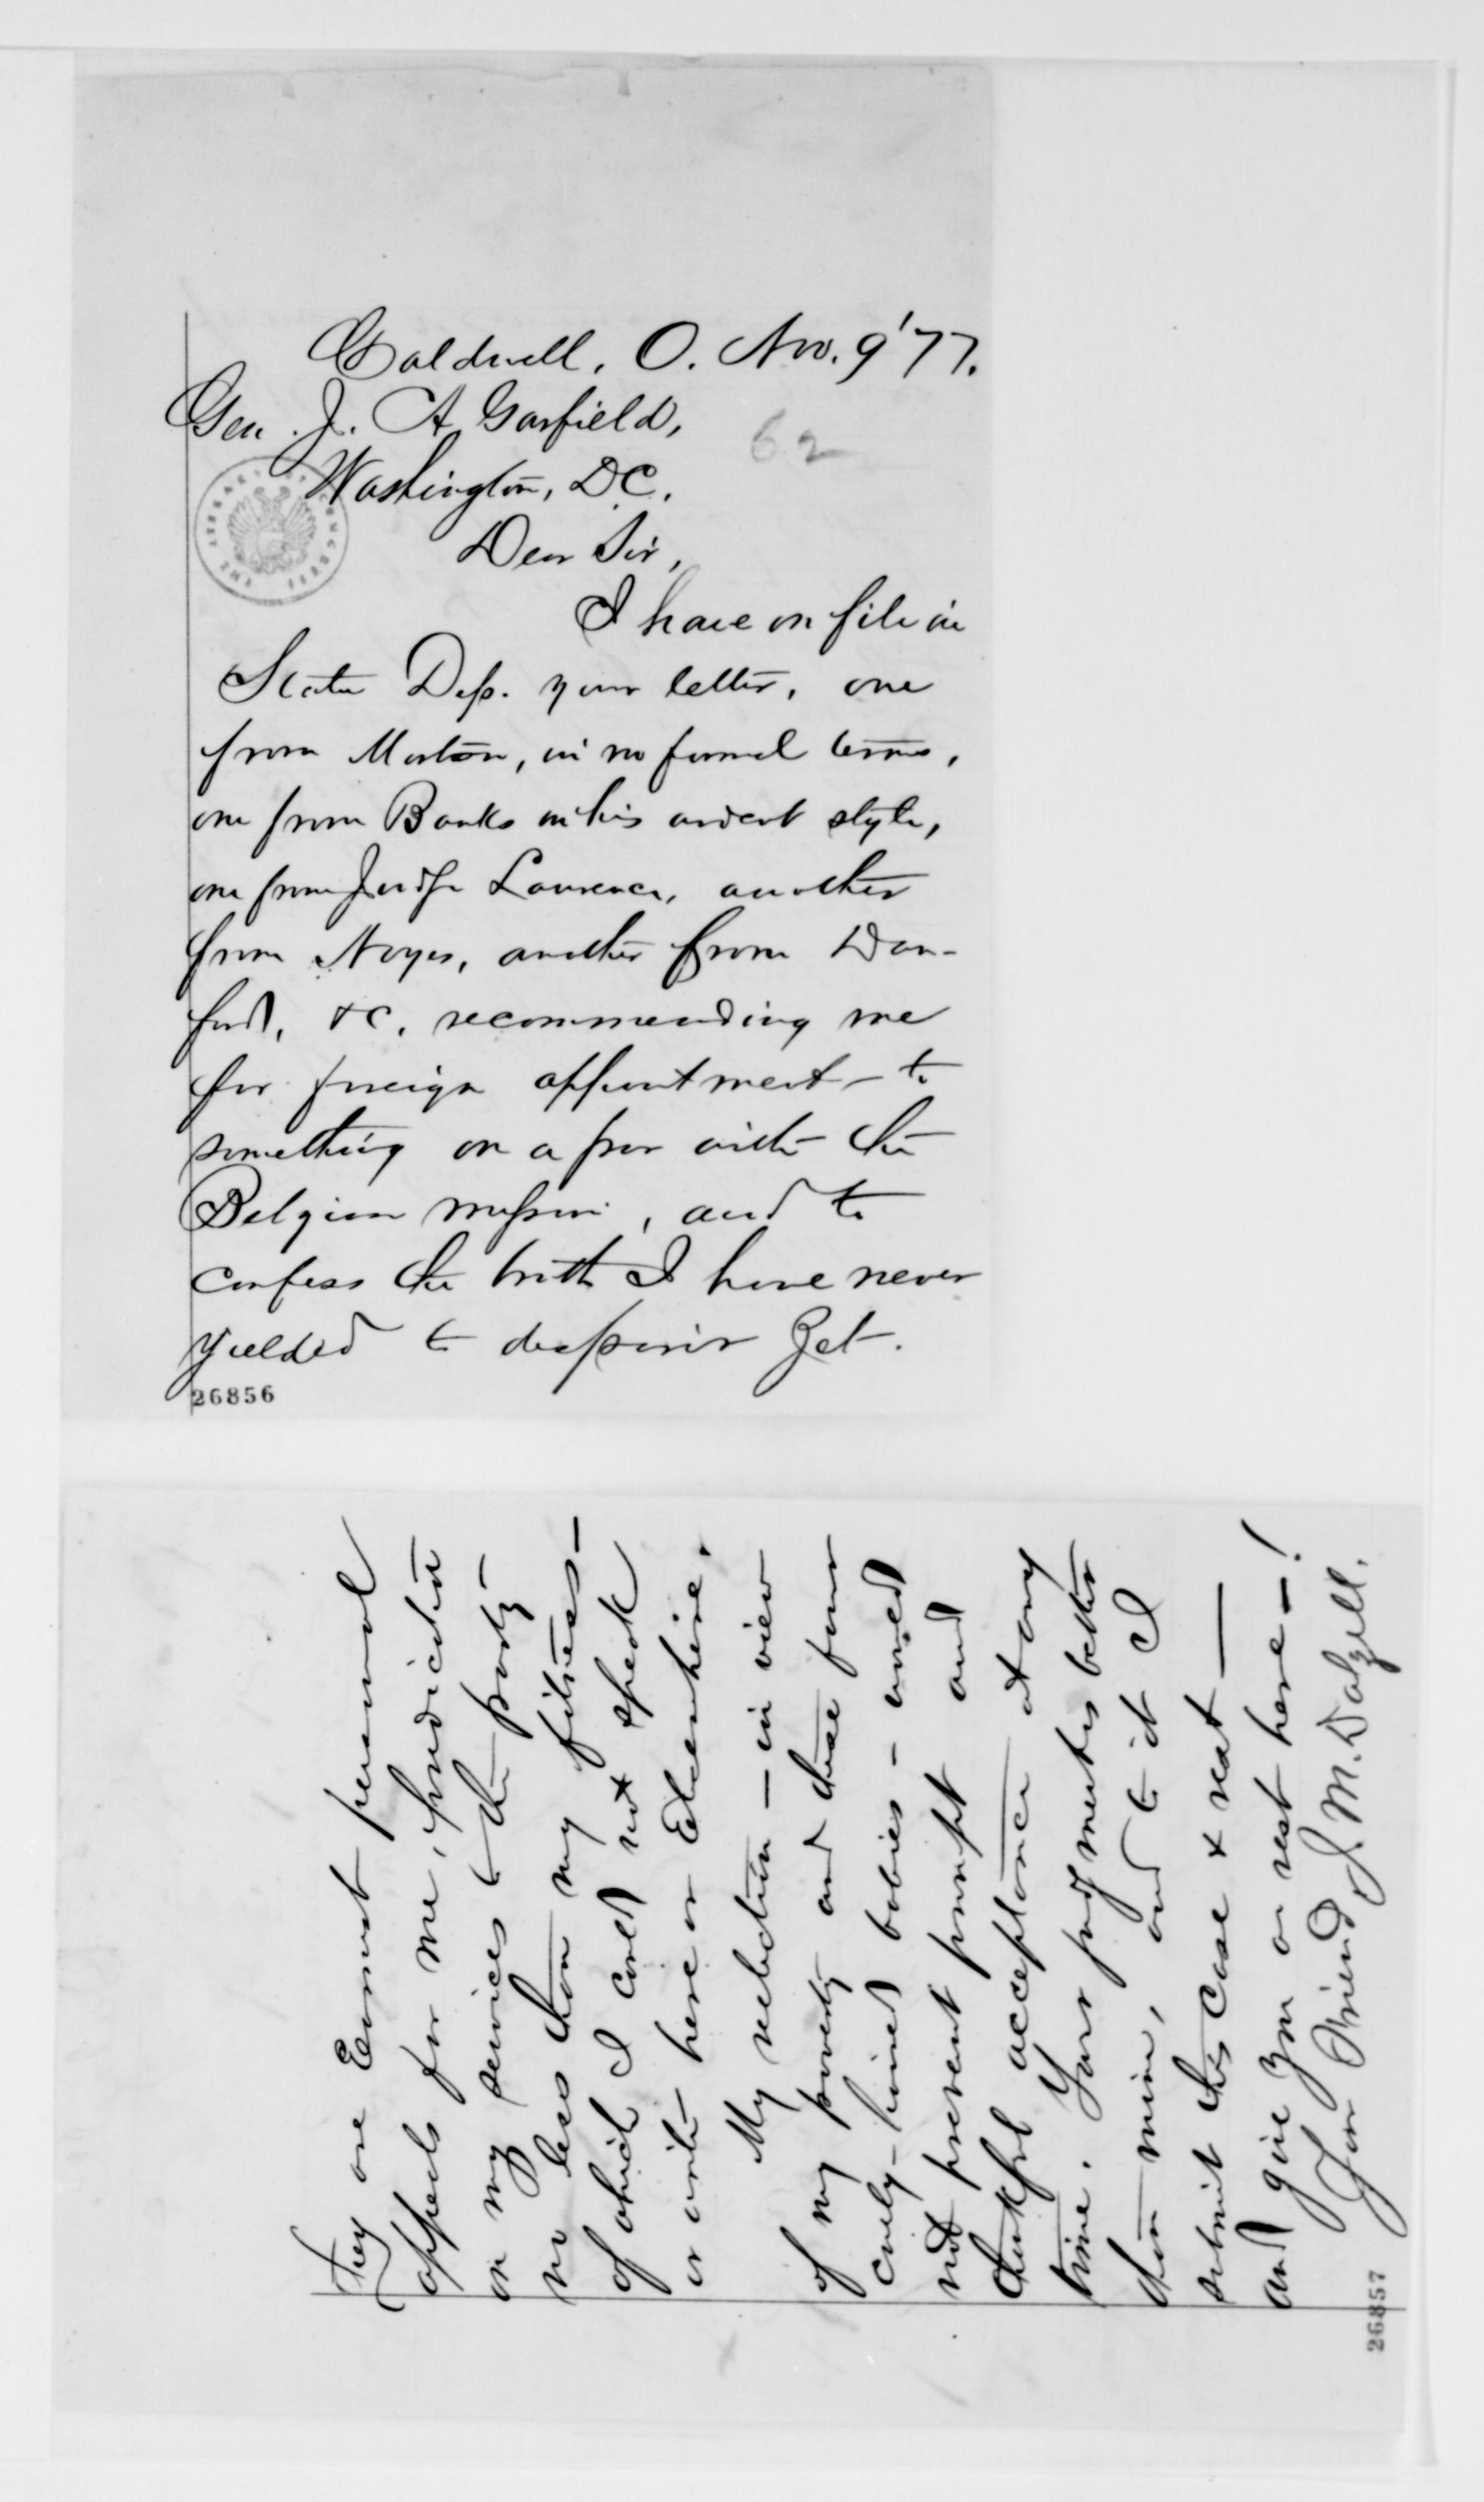 Caldwell, O. Nov. 9 '77.
Gen. J. A Garfield,
62
Washington, D.C.
Dear Sir,
I have on file in
State Dep. your letter, one
from Morton, in no formal terms,
one from Banks in his ardent style,
one from Judge Lawrence, another
from Noyes, another from Dan-
ford, &c. recommending me
for foreign appointment – to
something on a par with the
Belgian mission, and to
confess the truth I have never
yielded to despair yet.
26856
They are Earnest personal
appeals for me, predicated
on my services to the party –
no less than my fitness –
of which I could not speak
or write here or Elsewhere.
My reluction – in view
of my poverty and these four
curly-haired babies – would
not prevent prompt and
thankful acceptance at any
time. Your judgment is better
than mine, and to it I
submit this case & rest –
and give you a rest here – !
Your Friend J. M. Dalzell.
26857